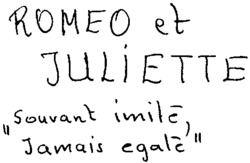 ROMEO et
JULIETTE
"Souvant imité,
Jamais egalé"